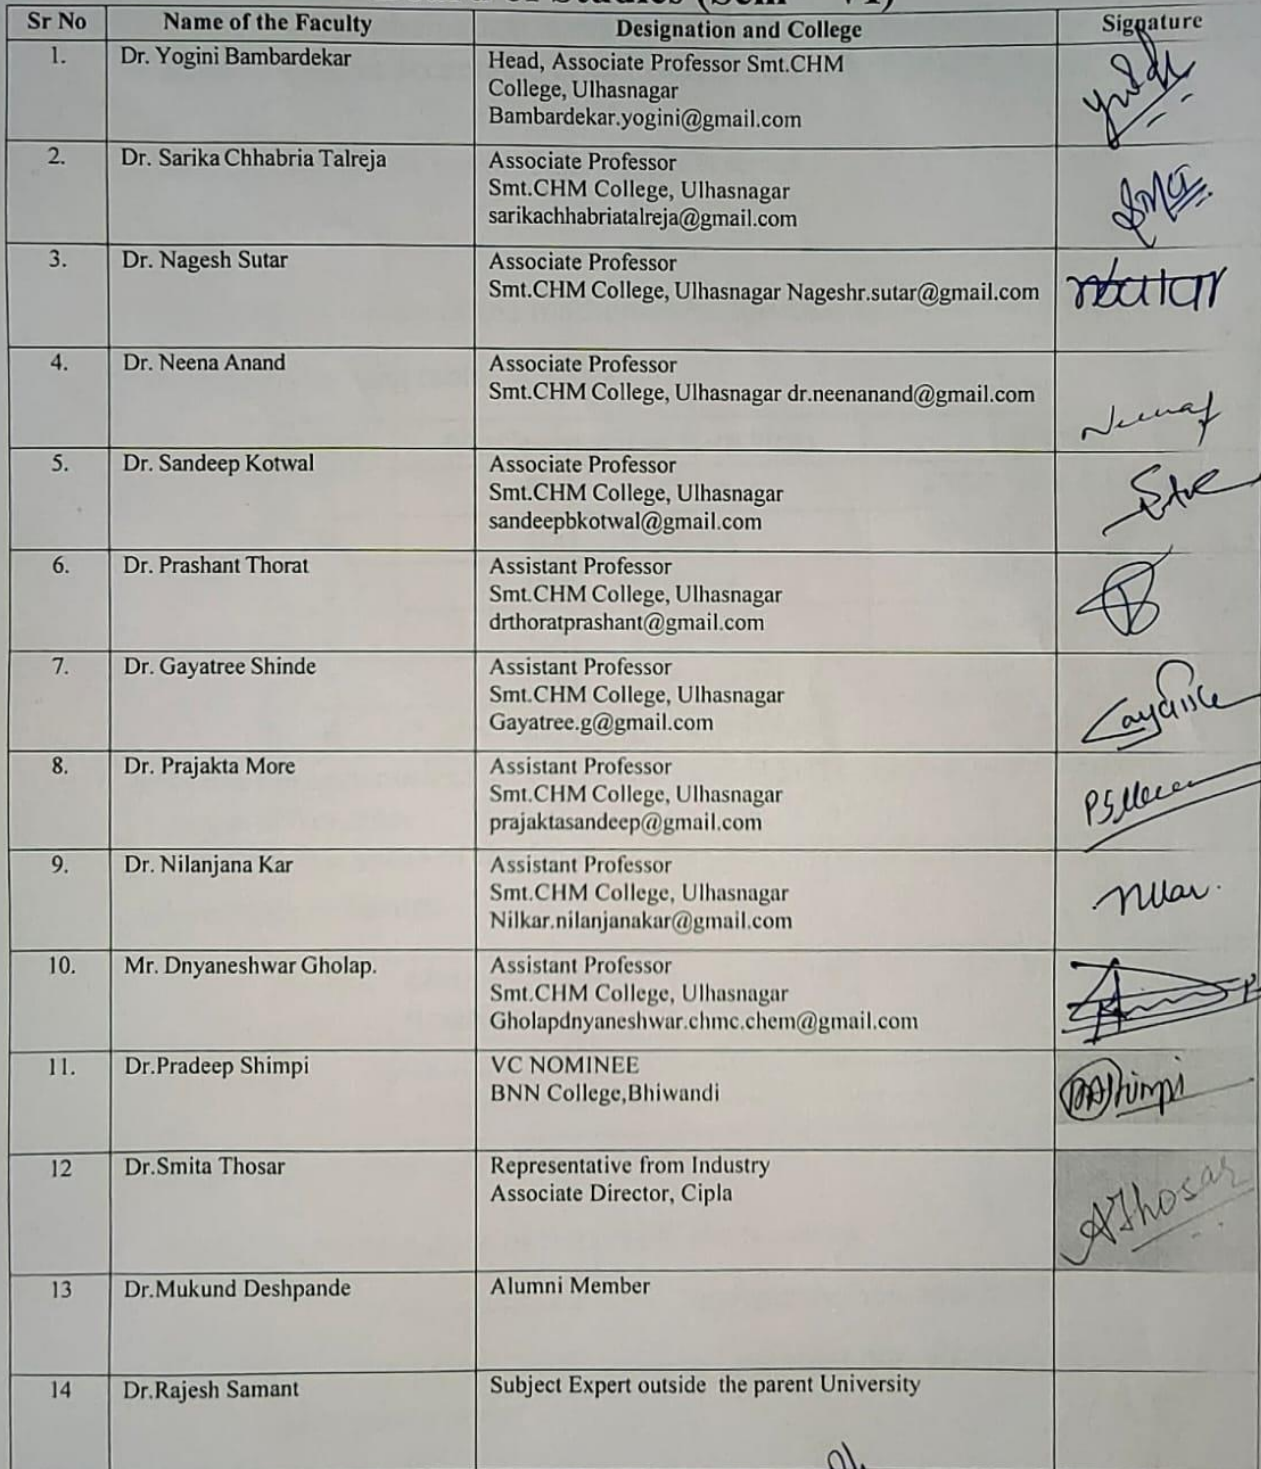 Board of Studies (Sem – VI)
Sr No Name of the Faculty Designation and College Signature
1. Dr. Yogini Bambardekar Head, Associate Professor Smt.CHM
College, Ulhasnagar
Bambardekar.yogini@gmail.com
2. Dr. Sarika Chhabria Talreja Associate Professor
Smt.CHM College, Ulhasnagar
sarikachhabriatalreja@gmail.com
3. Dr. Nagesh Sutar Associate Professor
Smt.CHM College, Ulhasnagar Nageshr.sutar@gmail.com
4. Dr. Neena Anand Associate Professor
Smt.CHM College, Ulhasnagar dr.neenanand@gmail.com
5. Dr. Sandeep Kotwal Associate Professor
Smt.CHM College, Ulhasnagar
sandeepbkotwal@gmail.com
6. Dr. Prashant Thorat Assistant Professor
Smt.CHM College, Ulhasnagar
drthoratprashant@gmail.com
7. Dr. Gayatree Shinde Assistant Professor
Smt.CHM College, Ulhasnagar
Gayatree.g@gmail.com
8. Dr. Prajakta More Assistant Professor
Smt.CHM College, Ulhasnagar
prajaktasandeep@gmail.com
9. Dr. Nilanjana Kar Assistant Professor
Smt.CHM College, Ulhasnagar
Nilkar.nilanjanakar@gmail.com
10. Mr. Dnyaneshwar Gholap. Assistant Professor
Smt.CHM College, Ulhasnagar
Gholapdnyaneshwar.chmc.chem@gmail.com
11. Dr.Pradeep Shimpi VC NOMINEE
BNN College,Bhiwandi
12 Dr.Smita Thosar Representative from Industry
Associate Director, Cipla
13 Dr.Mukund Deshpande Alumni Member
14 Dr.Rajesh Samant Subject Expert outside the parent University